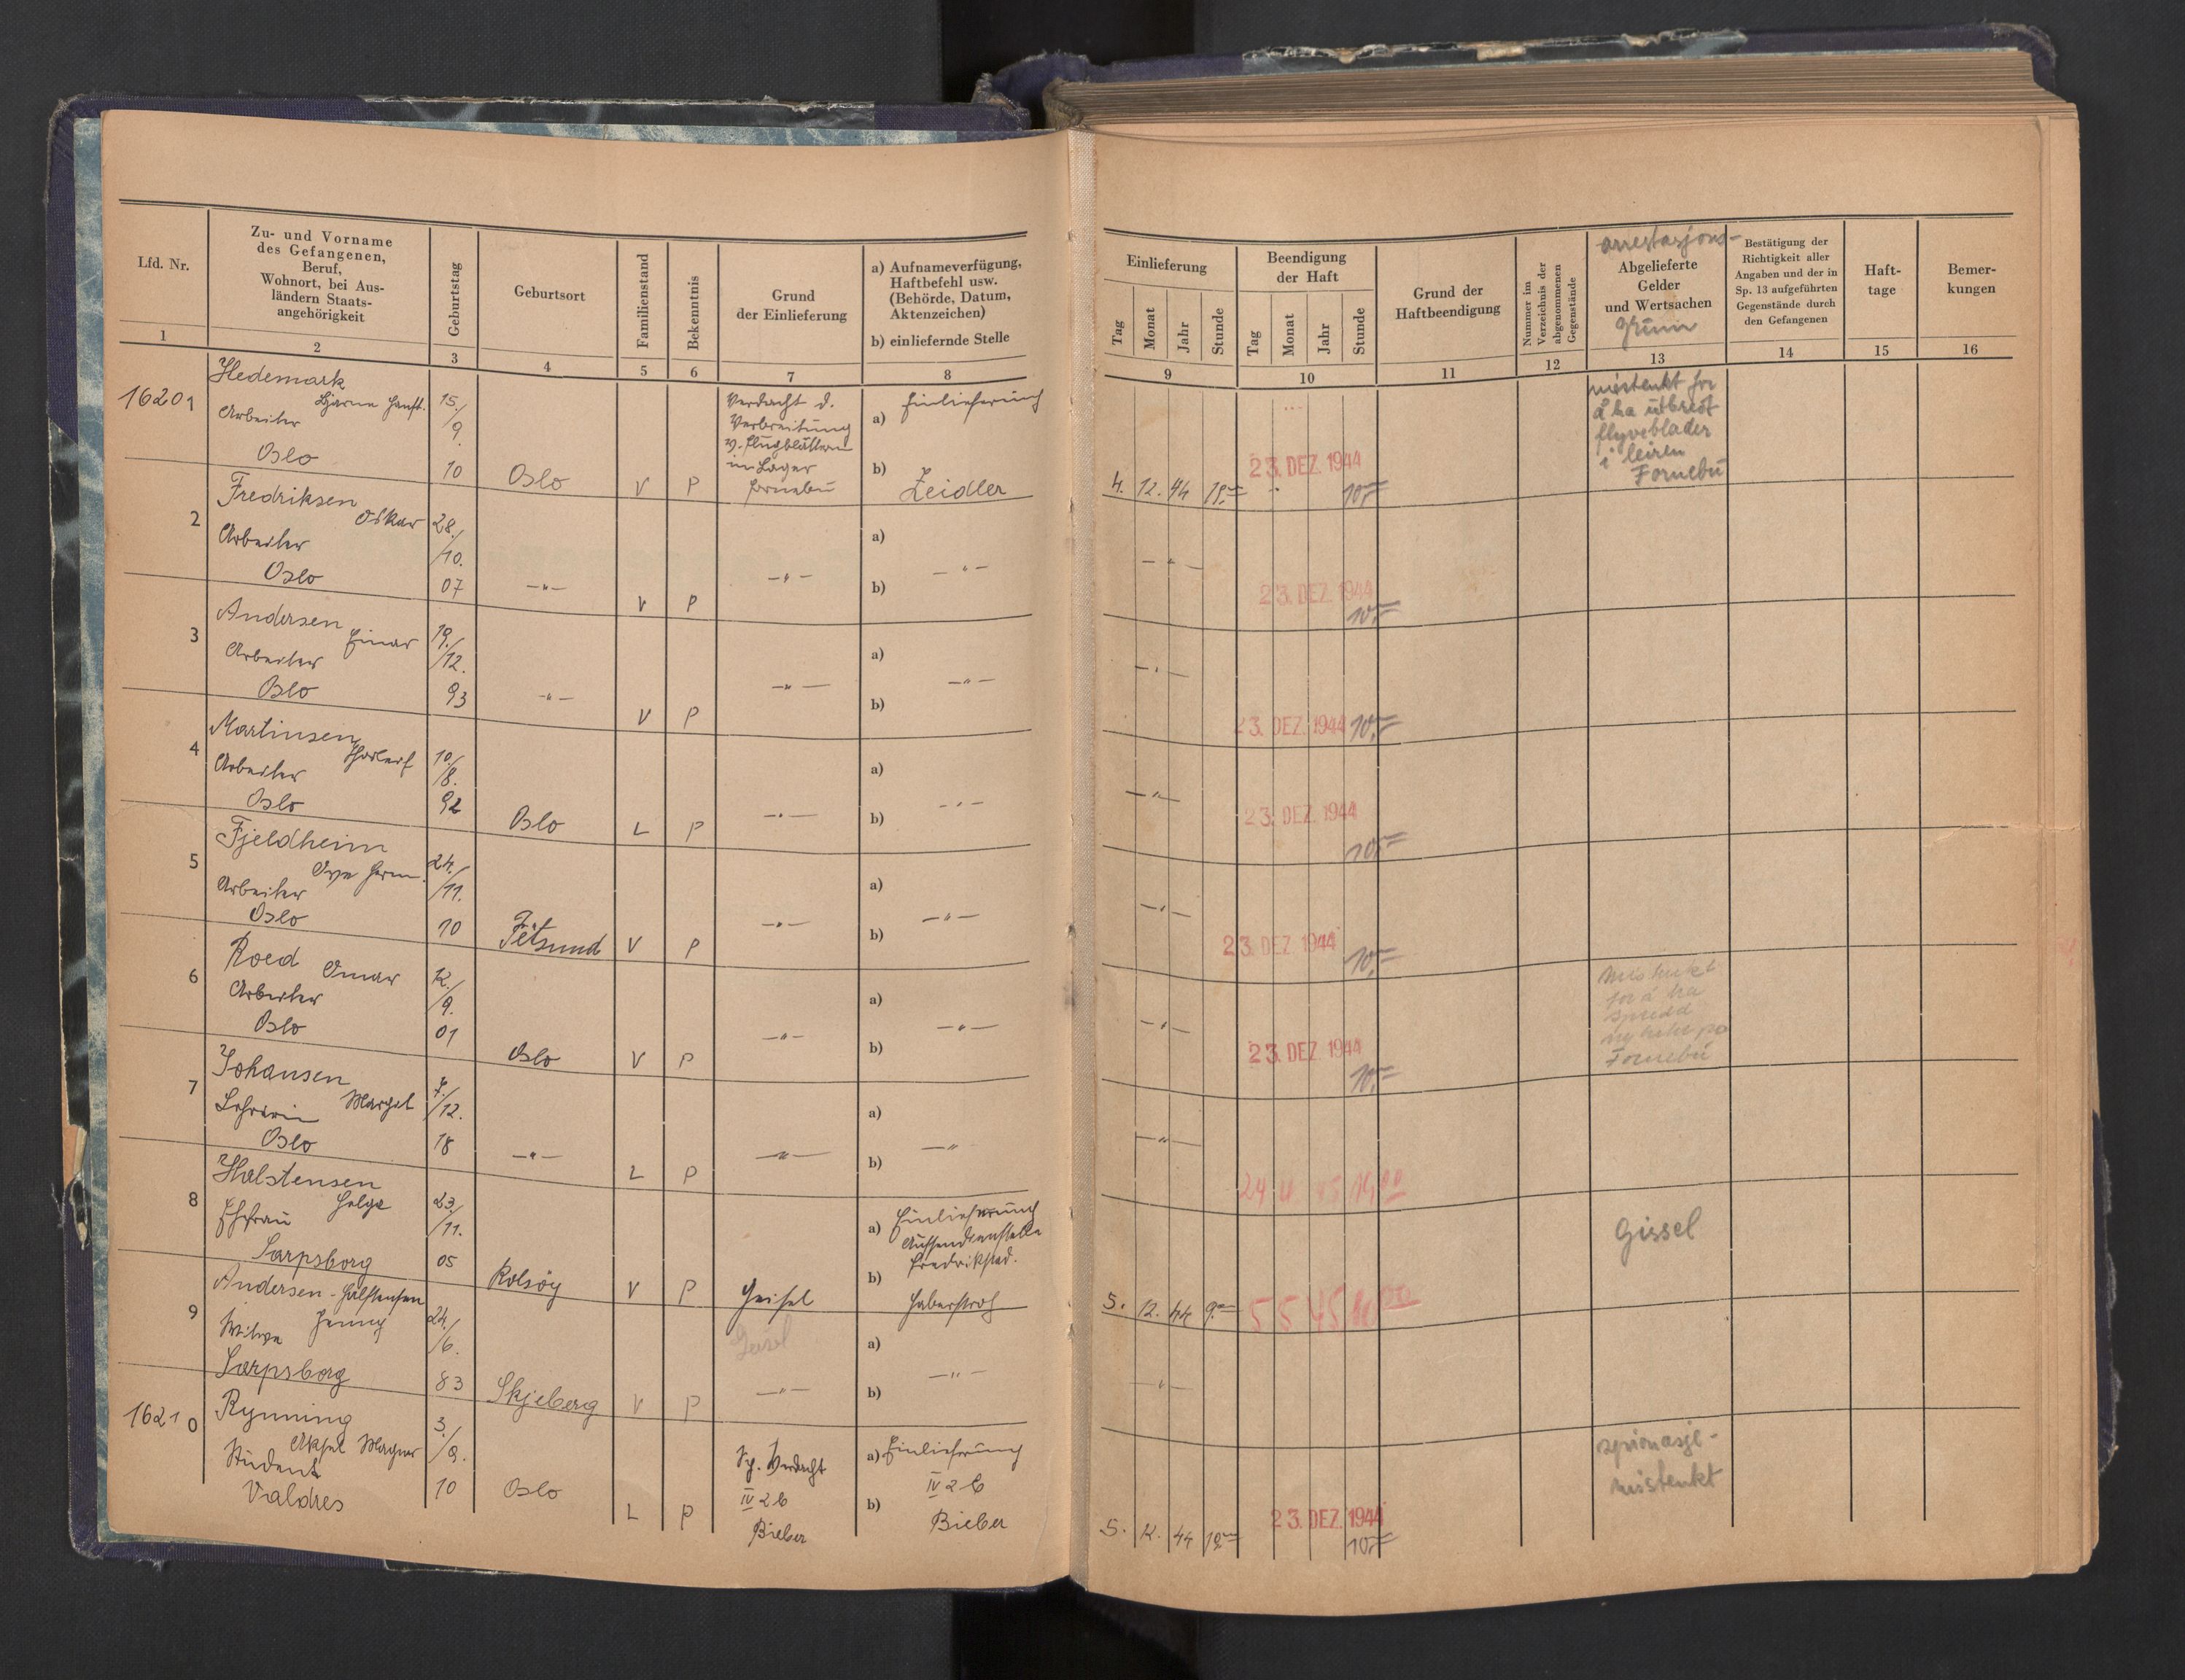 Lfd. Nr.
Zu- und Vorname
des Gefangenen,
Beruf,
Wohnort, bei Aus-
ländern Staats-
angehörigkeit
Geburtstag
Geburtsort
Familienstand
Bekenntnis
Grund
der Einlieferung
a) Aufnameverfügung,
Haftbefehl usw.
(Behörde, Datum,
Aktenzeichen)
b) einliefernde Stelle
1 2 3 4 5 6 7 8
Hedemark
16201 Bjarne 15./
Arbeiter 9.
Oslo 10 Oslo V P
Verdacht d.
Verbreitung
v. Flugblättern
im Lager
Fornebu
a) Einlieferung
b) Zeidler
Fredriksen
2 Oskar 28./
Arbeiter 10.
Oslo 07 —"— V P —"— —"—
a)
b)
Andersen
3 Einar 19./
Arbeiter 12.
Oslo 93 —"— V P —"— —"—
a)
b)
Martinsen
4 Thorleif 10./
Arbeiter 8.
Oslo 92 Oslo L P —"— —"—
a)
b)
Fjeldheim
5 24./
Arbeiter 11.
Oslo 10 Fetsund V P —"— —"—
a)
b)
Roed Omar
6 12./
Arbeiter 9.
Oslo 01 Oslo V P —"— —"—
a)
b)
Johansen
7 Margit 7./
Lehrerin 12.
Oslo 18 —"— L P —"— —"—
a)
b)
Halstensen
8 Helga 23./
Ehefrau 11.
Sarpsborg 05 Rolsöy V P Geisel
a) Einlieferung
Aussendienststelle
Fredrikstad.
b) Haberstroh
Andersen-Halstensen
9 Jenny 24./
Witwe 6.
Sarpsborg 83 Skjeberg V P —"— —"—
Geisel
a)
b)
Rynning
16210 Aksel Magnus 3./
Student 9.
Valdres 10 Oslo L P
Sp. Verdacht
IV 2 b
Bieber
a) Einlieferung
IV 2 b
b) Bieber
Einlieferung
Tag Monat Jahr Stunde
Beendigung
der Haft
Tag Monat Jahr Stunde
Grund der
Haftbeendigung
Nummer im
Verzeichnis der
abgenommenen
Gegenstände
arrestasjons-
Abgelieferte
Gelder
und Wertsachen
grunn
Bestätigung der
Richtigkeit aller
Angaben und der in
Sp. 13 aufgeführten
Gegenstände durch
den Gefangenen
Haft-
tage
Bemer-
kungen
9 10 11 12 13 14 15 16
mistenkt for
å ha utbredt
flyveblader
i leiren
Fornebu
23. DEZ. 1944
4. 12. 44 10.
—"—
23. DEZ. 1944
10.
—"—
23. DEZ. 1944 10.
—"—
23. DEZ. 1944
10.
—"—
23. DEZ. 1944
10.
mistenkt
for å ha
spredd
nyheter på
Fornebu
—"—
23. DEZ. 1944
10.
—"—
24 4 45
Gissel
5. 12. 44 5 5 45
—"—
spionasje-
mistenkt
23. DEZ. 1944
5. 12. 44 10.